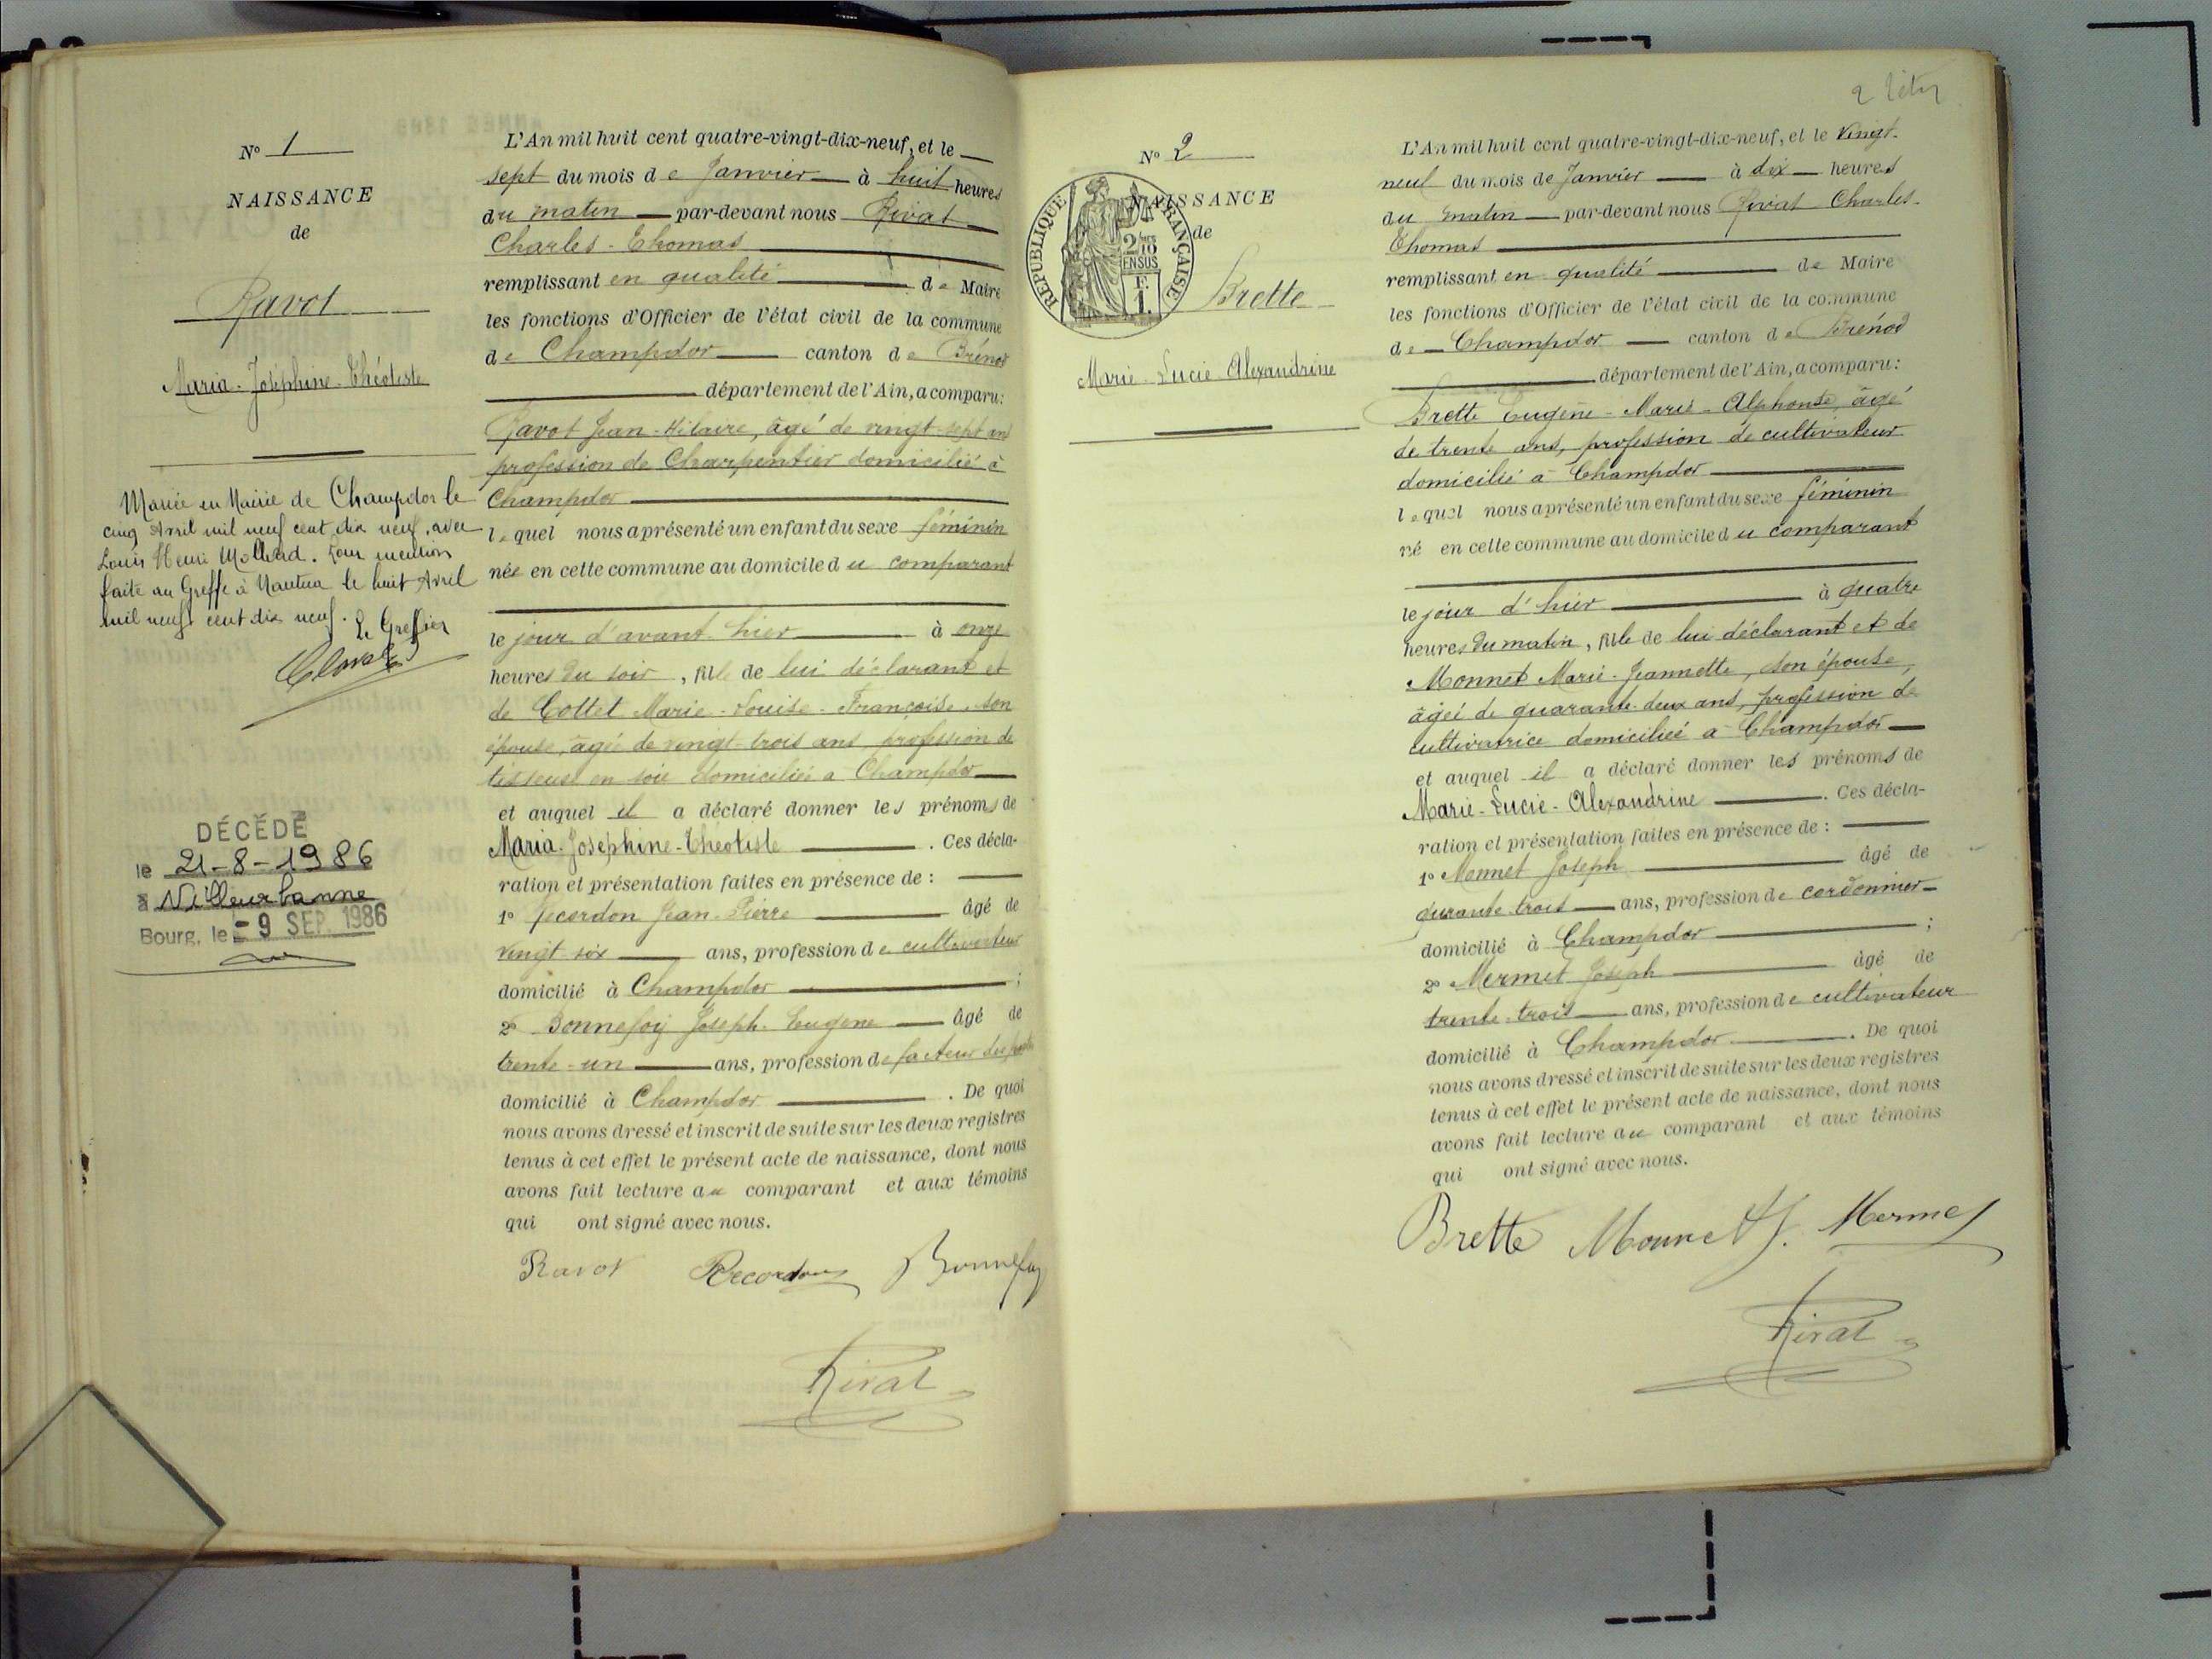 N° 1
NAISSANCE
de
Ravot
Maria-Joséphine-Théotiste
Mariée en Mairie de Champdor le
cinq Avril mil neuf cent dix neuf, avec
Louis Henri Mollard. Pour mention
faite au Greffe à Nantua le huit Avril
mil neuf cent dix neuf.
Le Greffier
DÉCÉDÉ
le 21-8-1986
à Villeurbanne
Bourg, le -9 SEP. 1986
L'An mil huit cent quatre-vingt-dix-neuf, et le
sept du mois de Janvier à huit heures
du matin par-devant nous Rivat
Charles-Thomas
remplissant en qualité de Maire
les fonctions d'Officier de l'état civil de la commune
de Champdor canton de Brénod
département de l'Ain, a comparu:
Ravot Jean-Hilaire, âgé de vingt-sept ans
profession de Charpentier domicilié à
Champdor
lequel nous a présenté un enfant du sexe féminin
née en cette commune au domicile du comparant
le jour d'avant-hier à onze
heures du soir, fille de lui déclarant et
de Cottet Marie-Louise-Françoise, son
épouse, âgée de vingt-trois ans, profession de
tisseuse en soie domiciliée à Champdor
et auquel il a déclaré donner les prénoms de
Maria-Joséphine-Théotiste. Ces décla-
ration et présentation faites en présence de :
1° Recordon Jean-Pierre âgé de
vingt six ans, profession de cultivateur
domicilié à Champdor ;
2° Bonnefoy Joseph-Eugène âgé de
trente-un ans, profession de facteur des postes
domicilié à Champdor. De quoi
nous avons dressé et inscrit de suite sur les deux registres
tenus à cet effet le présent acte de naissance, dont nous
avons fait lecture au comparant et aux témoins
qui ont signé avec nous.
Ravot Recordon Bonnefoy
Rivat
2
N° 2
NAISSANCE
de
RÉPUBLIQUE FRANÇAISE
2/10 EN SUS
F. 1.
Brette
Marie-Lucie-Alexandrine
L'An mil huit cent quatre-vingt-dix-neuf, et le vingt-
neuf du mois de Janvier à dix heures
du matin par-devant nous Rivat Charles-
Thomas
remplissant en qualité de Maire
les fonctions d'Officier de l'état civil de la commune
de Champdor canton de Brénod
département de l'Ain, a comparu:
Brette Eugène-Marie-Alphonse, âgé
de trente ans, profession de cultivateur
domicilié à Champdor
lequel nous a présenté un enfant du sexe féminin
né en cette commune au domicile du comparant
le jour d'hier à quatre
heures du matin, fille de lui déclarant et de
Monnet Marie-Jeannette, son épouse,
âgée de quarante-deux ans, profession de
cultivatrice domiciliée à Champdor
et auquel il a déclaré donner les prénoms de
Marie-Lucie-Alexandrine. Ces décla-
ration et présentation faites en présence de :
1° Monnet Joseph âgé de
qurante-trois ans, profession de cordonnier
domicilié à Champdor ;
2° Mermet Joseph âgé de
trente-trois ans, profession de cultivateur
domicilié à Champdor. De quoi
nous avons dressé et inscrit de suite sur les deux registres
tenus à cet effet le présent acte de naissance, dont nous
avons fait lecture au comparant et aux témoins
qui ont signé avec nous.
Brette Monnet J. Mermet
Rivat